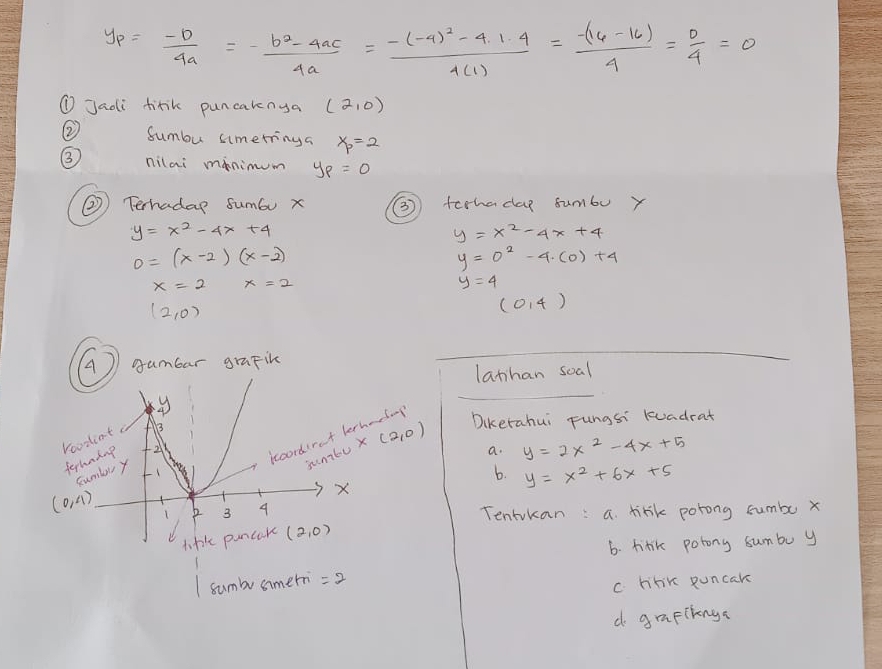 yp = -D/4a = - b² - 4ac/4a = -(-4)² - 4.1.4/4(1) = -(16-16)/4 = 0/4 = 0
① Jadi titik puncaknya (2,0)
② Sumbu simetrinya xp=2
③ nilai minimum yp = 0
② Terhadap sumbu x
y = x² - 4x +4
0 = (x-2) (x-2)
x = 2 x = 2
(2,0)
③ terhadap sumbu y
y = x² - 4x +4
y = 0² - 4.(0) +4
y = 4
(0,4)
④ gambar grafik
y
4
3
2
1
1 2 3 4
x
koordinat
terhadap
sumbu y
(0,4)
koordinat terhadap
sumbu x (2,0)
titik puncak (2,0)
sumbu simetri = 2
latihan soal
Diketahui fungsi kuadrat
a. y = 2x² - 4x + 5
b. y = x² + 6x + 5
Tentukan : a. titik potong sumbu x
b. titik potong sumbu y
c. titik puncak
d. grafiknya